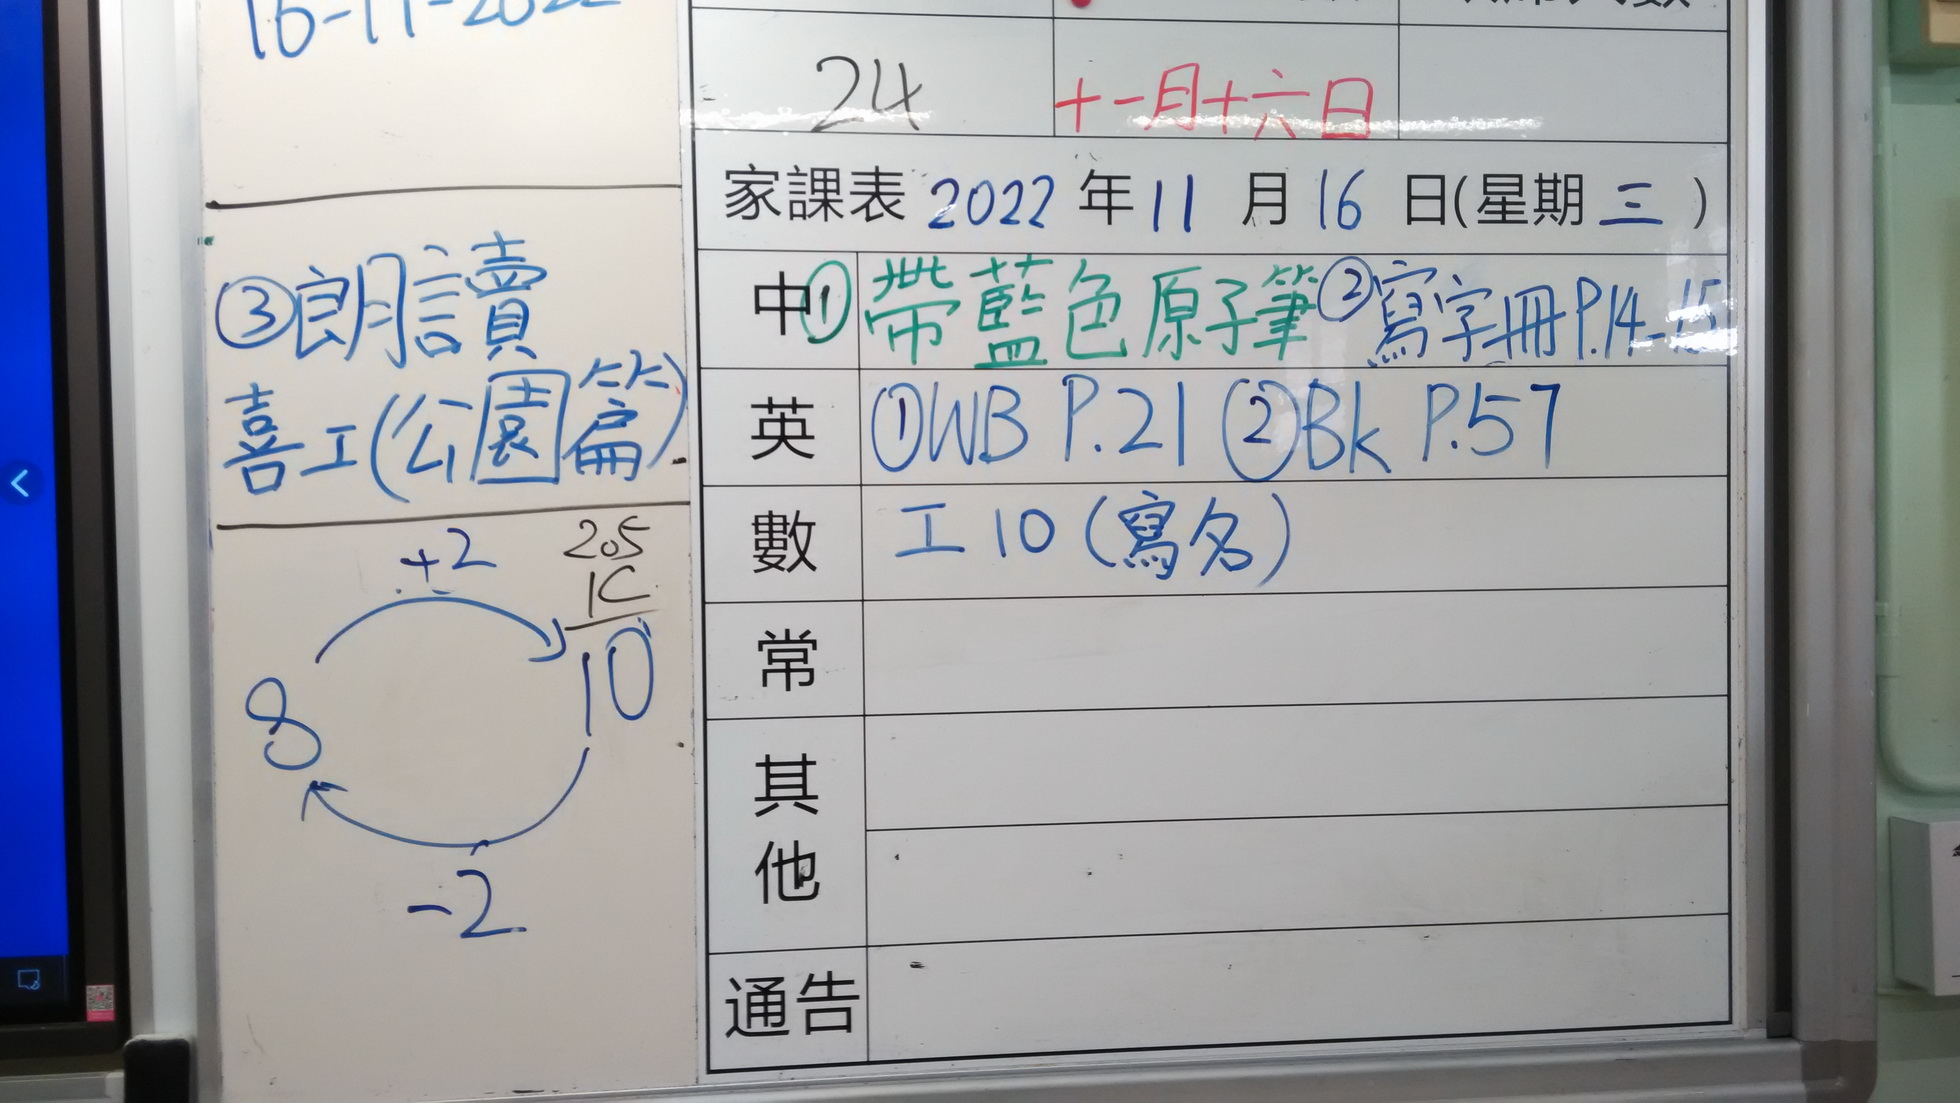 16-11-2022
24
十一月十六日
家課表 2022 年 11 月 16 日(星期 三 )
中 ①帶藍色原子筆 ②寫字冊P.14-15
英 ①WB P.21 ②Bk P.57
數 工10 (寫名)
常
其他
通告
③朗讀
喜工(公園篇)
+2
205
1C
8
10
-2